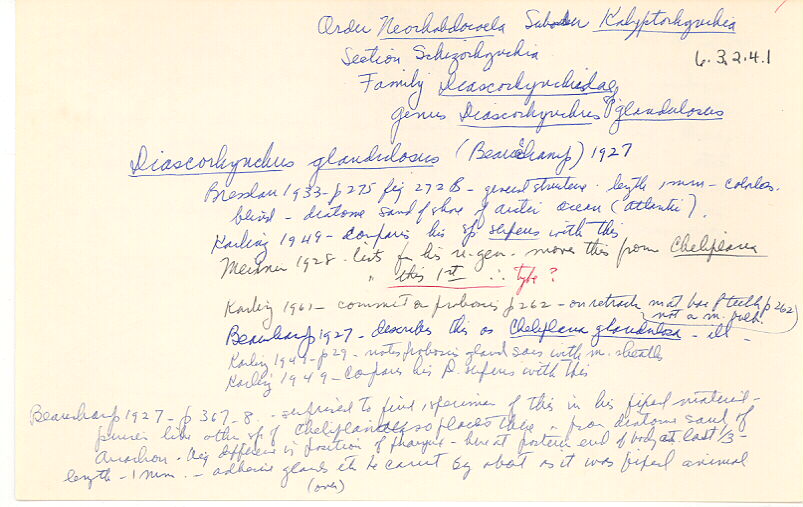 Order Neorhabdocoela Suborder Kalyptorhynchia
Section Schizorhynchia
6.3.2.4.1
Family Diascorhynchidae
genus Diascorhynchus glandulosus
Diascorhynchus glandulosus (Beauchamp) 1927
Bresslau 1933 - p 275 fig 272 B - general structure. length 1 mm - colorless.
blind - diatome sand of shore of arctic ocean (atlantic).
Karling 1949 - compares his sp serpens with this
Meixner 1928 - lists for his n. gen. moves this from Cheliplana
" this 1st ∴ type?
Karling 1961 - comment on proboscis p 262 - on retract not base of teeth p 262)
not a m. bulb.
Beauchamp 1927 - describes this as Cheliplana glandulosa - ill -
Karling 1949 - p 29 - notes proboscis gland sacs with m. sheath
Karling 1949 - compares his D. serpens with this
Beauchamp 1927 - p 367-8. - surprised to find 1 specimen of this in his fixed material -
like other sp of Cheliplana so places there - from diatome sand of
Arcachon. big difference is position of pharynx - here at posterior end of body at last 1/3 -
length - 1 mm. - adhesive glands etc he cannot say about as it was fixed animal
(over)